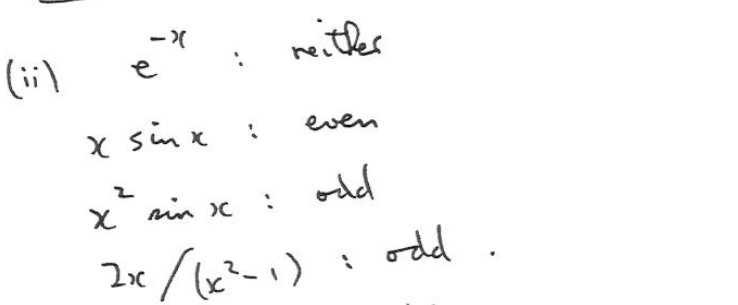 (ii) e^{-x} : neither
x sin x : even
x^2 sin x : odd
2x / (x^2 - 1) : odd .